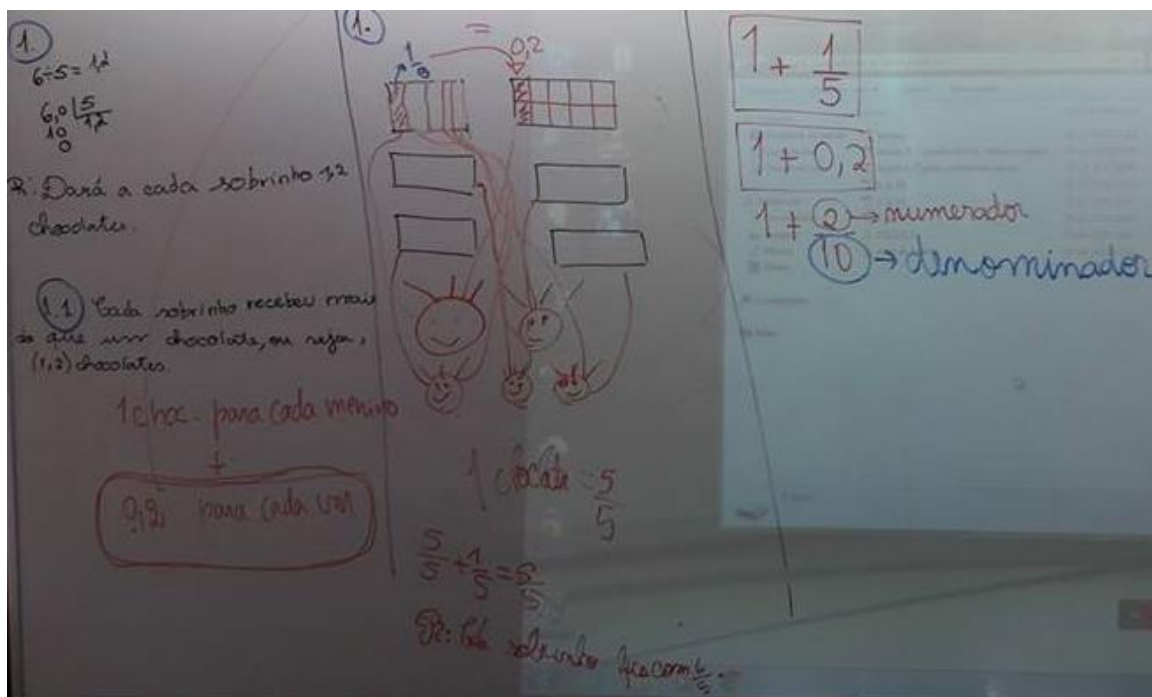 1.
6÷5=1,2
6,0 5
10 1,2
0
R: Dará a cada sobrinho 1,2
chocolates.
1.1 Cada sobrinho recebeu mais
do que um chocolate, ou seja,
(1,2) chocolates.
1 choc. para cada menino
+
0,2 para cada um
1.
=
1/5 0,2
1 chocolate = 5/5
5/5 + 1/5 = 6/5
R: Cada sobrinho fica com 6/5.
1 + 1/5
1 + 0,2
1 + 2 → numerador
10 → denominador